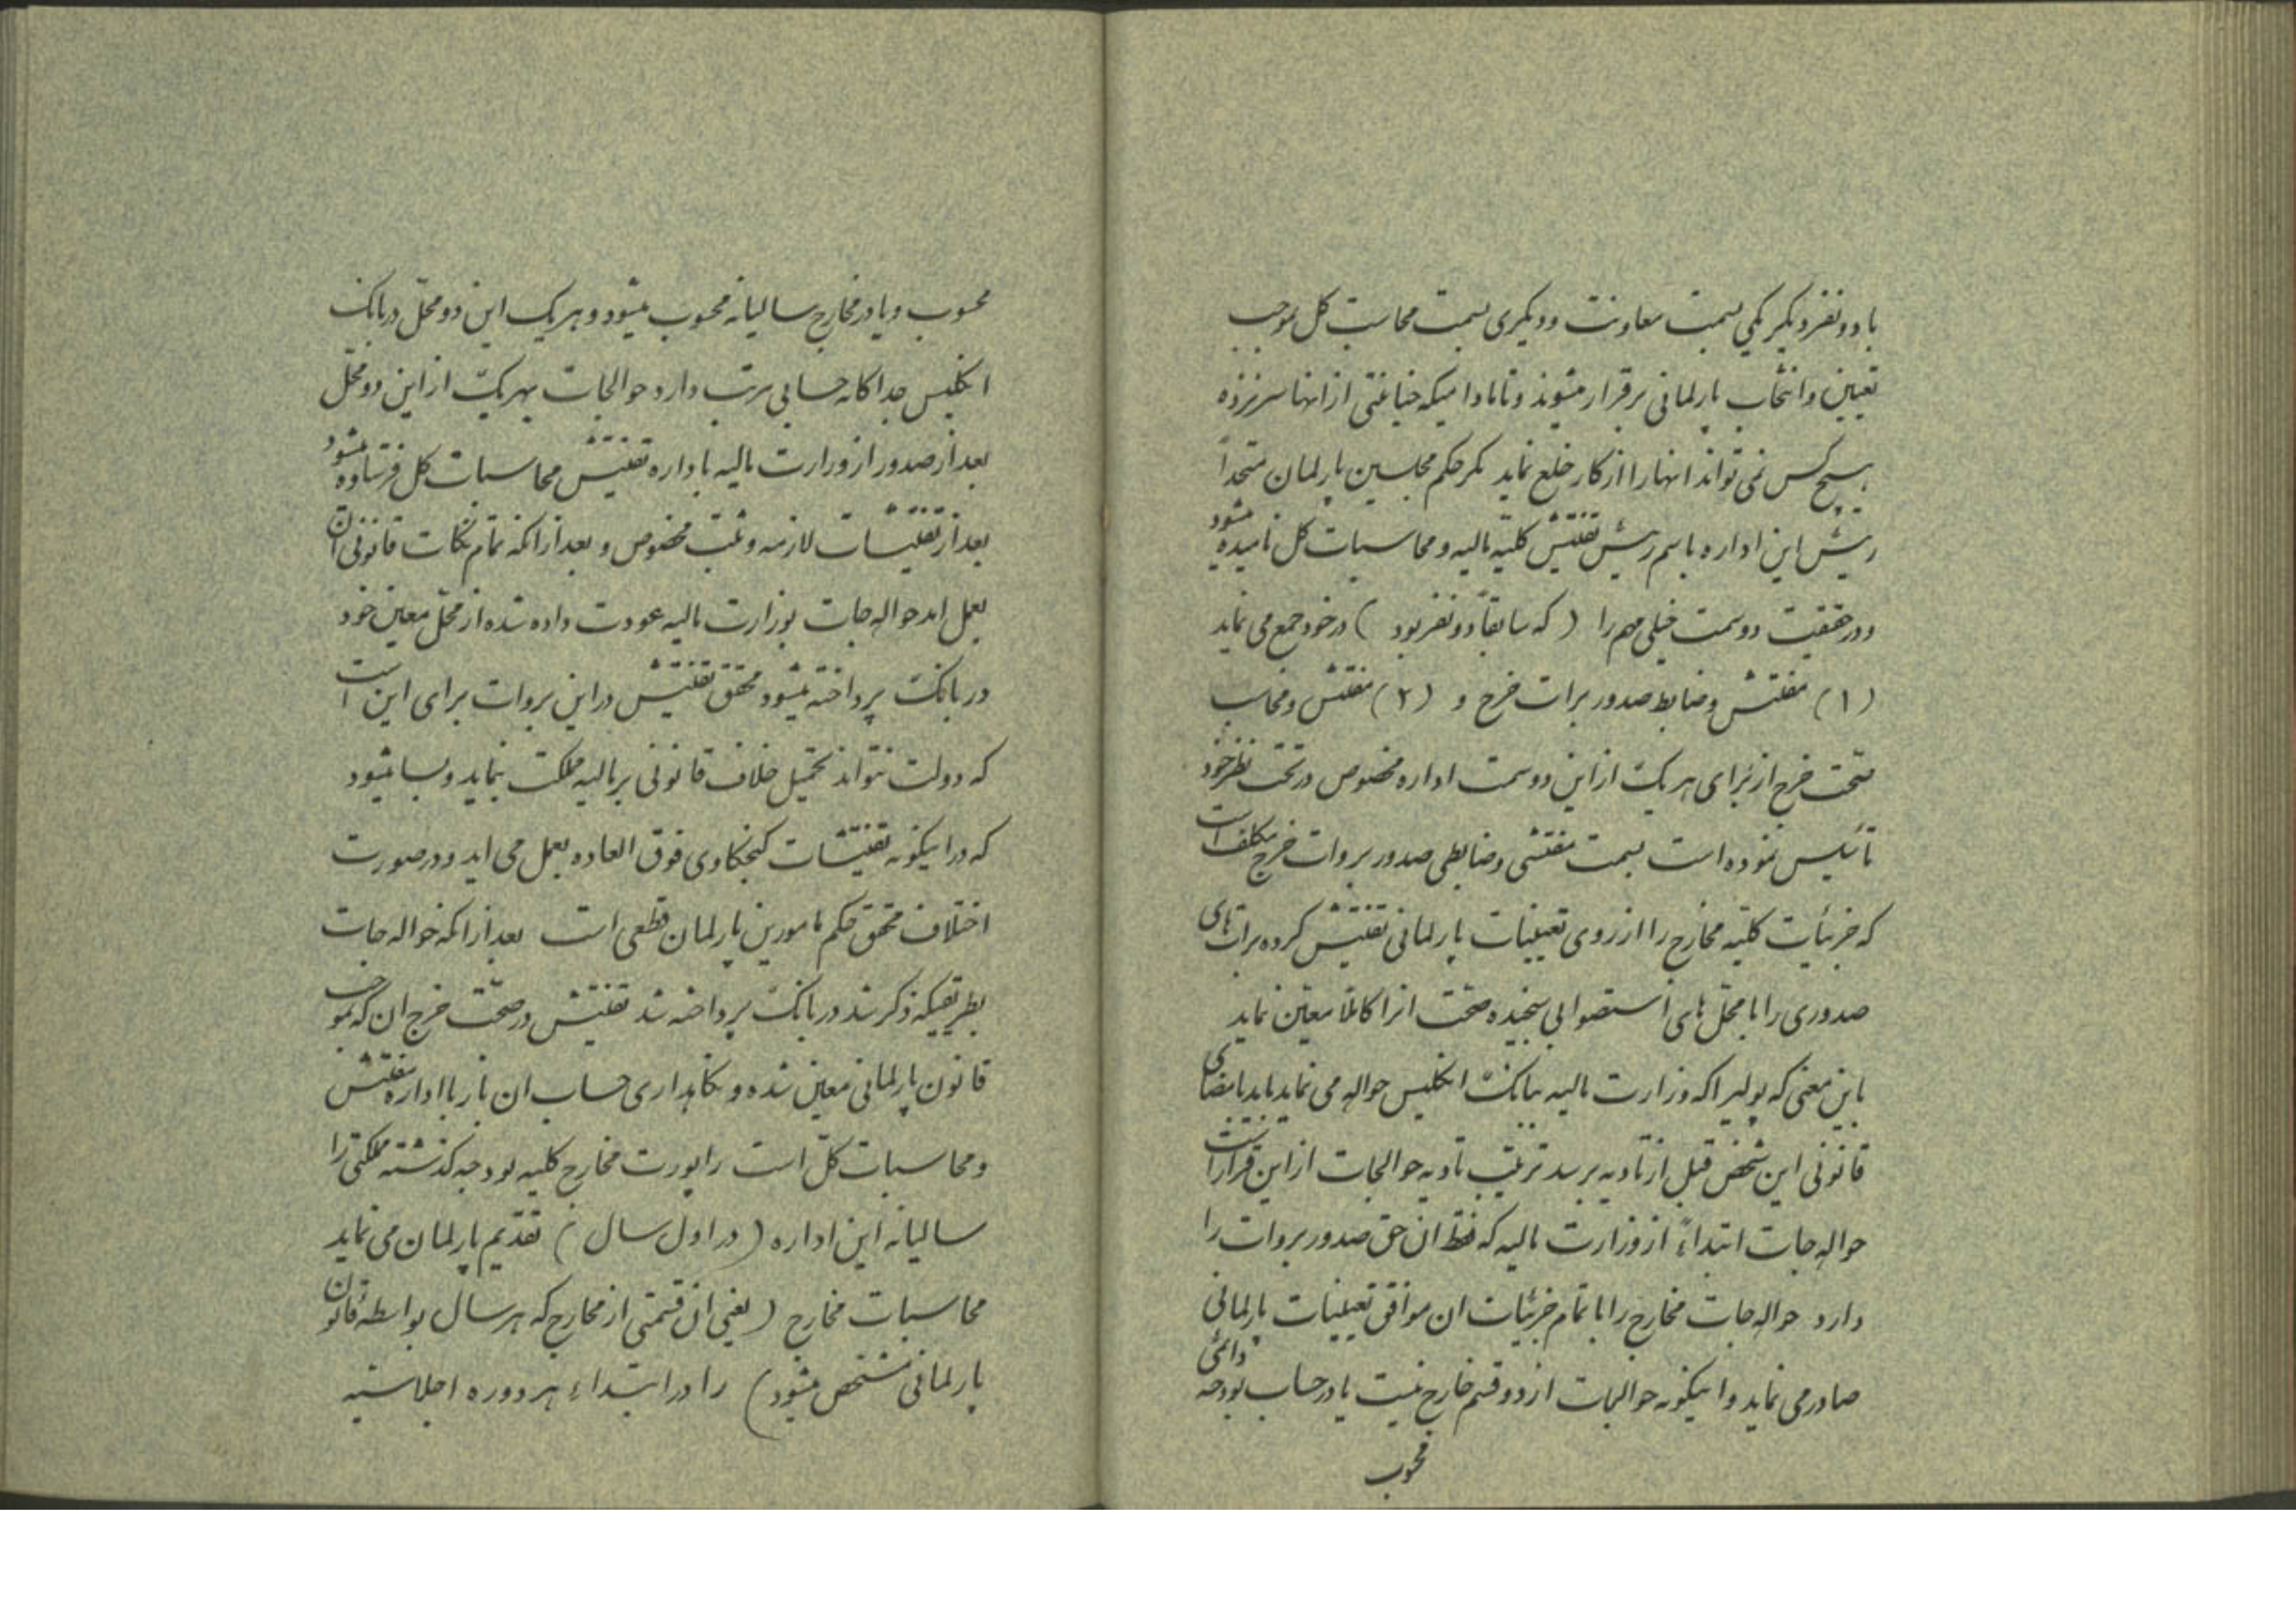 با دو نفر دیگر یکی بسمت معاونت و دیگری بسمت محاسبت کل بموجب
تعیین و انتخاب پارلمانی برقرار میشوند و تا مادامیکه خیانتی از انها سر نزده
هیچکس نمی تواند انها را از کار خلع نماید مگر حکم مجلسین پارلمان متحداً
رئیس این اداره باسم رئیس تفتیش کلیه مالیه و محاسبات کل نامیده میشود
و در حقیقت دو سمت خیلی مهم را ( که سابقاً دو نفر بود ) در خود جمع می نماید
(۱) مفتش و ضابط صدور برات خرج و (۲) مفتش و محاسب
صحت خرج از برای هر یک از این دو سمت اداره مخصوص در تحت نظر خود
تأسیس نموده است بسمت مفتشی و ضابطی صدور بروات خرج مکلف است
که جزئیات کلیه مخارج را از روی تعیینات پارلمانی تفتیش کرده برات های
صدوری را با محل های استصوابی سنجیده صحت انرا کاملا معین نماید
باین معنی که پولیرا که وزارت مالیه ببانک انگلیس حواله می نماید باید بامضای
قانونی این شخص قبل از تادیه برسد ترتیب تادیه حوالجات از این قرار است
حواله جات ابتداءً از وزارت مالیه که فقط ان حق صدور بروات را
دارد حواله جات مخارج را با تمام جزئیات ان موافق تعیینات پارلمانی
صادر می نماید و اینگونه حوالجات از دو قسم خارج نیست یا در حساب بودجه دائمی
محسوب
محسوب و یا در مخارج سالیانه محسوب میشود و هر یک این دو محل در بانک
انگلیس جداگانه حسابی مرتب دارد حوالجات بهر یک از این دو محل
بعد از صدور از وزارت مالیه باداره تفتیش محاسبات کل فرستاده میشود
بعد از تفتیشات لازمه و ثبت مخصوص و بعد از انکه تمام نکات قانونی ان
بعمل امد حواله جات بوزارت مالیه عودت داده شده از محل معین خود
در بانک پرداخته میشود محقق تفتیش در این بروات برای این است
که دولت نتواند تحمیل خلاف قانونی بر مالیه مملکت بنماید و بسا میشود
که در اینگونه تفتیشات کنجکاوی فوق العاده بعمل می اید و در صورت
اختلاف محقق حکم مامورین پارلمان قطعی است بعد از انکه حواله جات
بطریقیکه ذکر شد در بانک پرداخته شد تفتیش در صحت خرج ان که بموجب
قانون پارلمانی معین شده و نگاهداری حساب ان باز با اداره تفتیش
و محاسبات کل است راپورت مخارج کلیه بودجه گذشته مملکتی را
سالیانه این اداره ( در اول سال ) تقدیم پارلمان می نماید
محاسبات مخارج ( یعنی ان قسمتی از مخارج که هر سال بواسطه قانون
پارلمانی مشخص میشود ) را در ابتداء هر دوره اجلاسیه